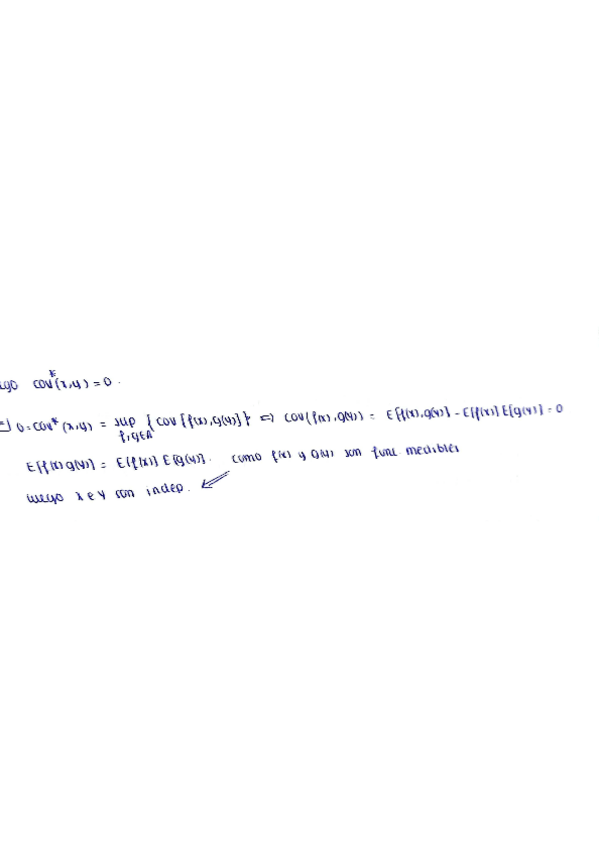 cov*(x,y) = 0.
0 = cov*(x,y) = sup {cov[f(x),g(y)]} ⇔ cov(f(x),g(y)) = E[f(x),g(y)] - E[f(x)] E[g(y)] = 0
f,g∈A
E[f(x)g(y)] = E[f(x)] E[g(y)]. como f(x) y g(y) son func. medibles
luego x e y son indep.